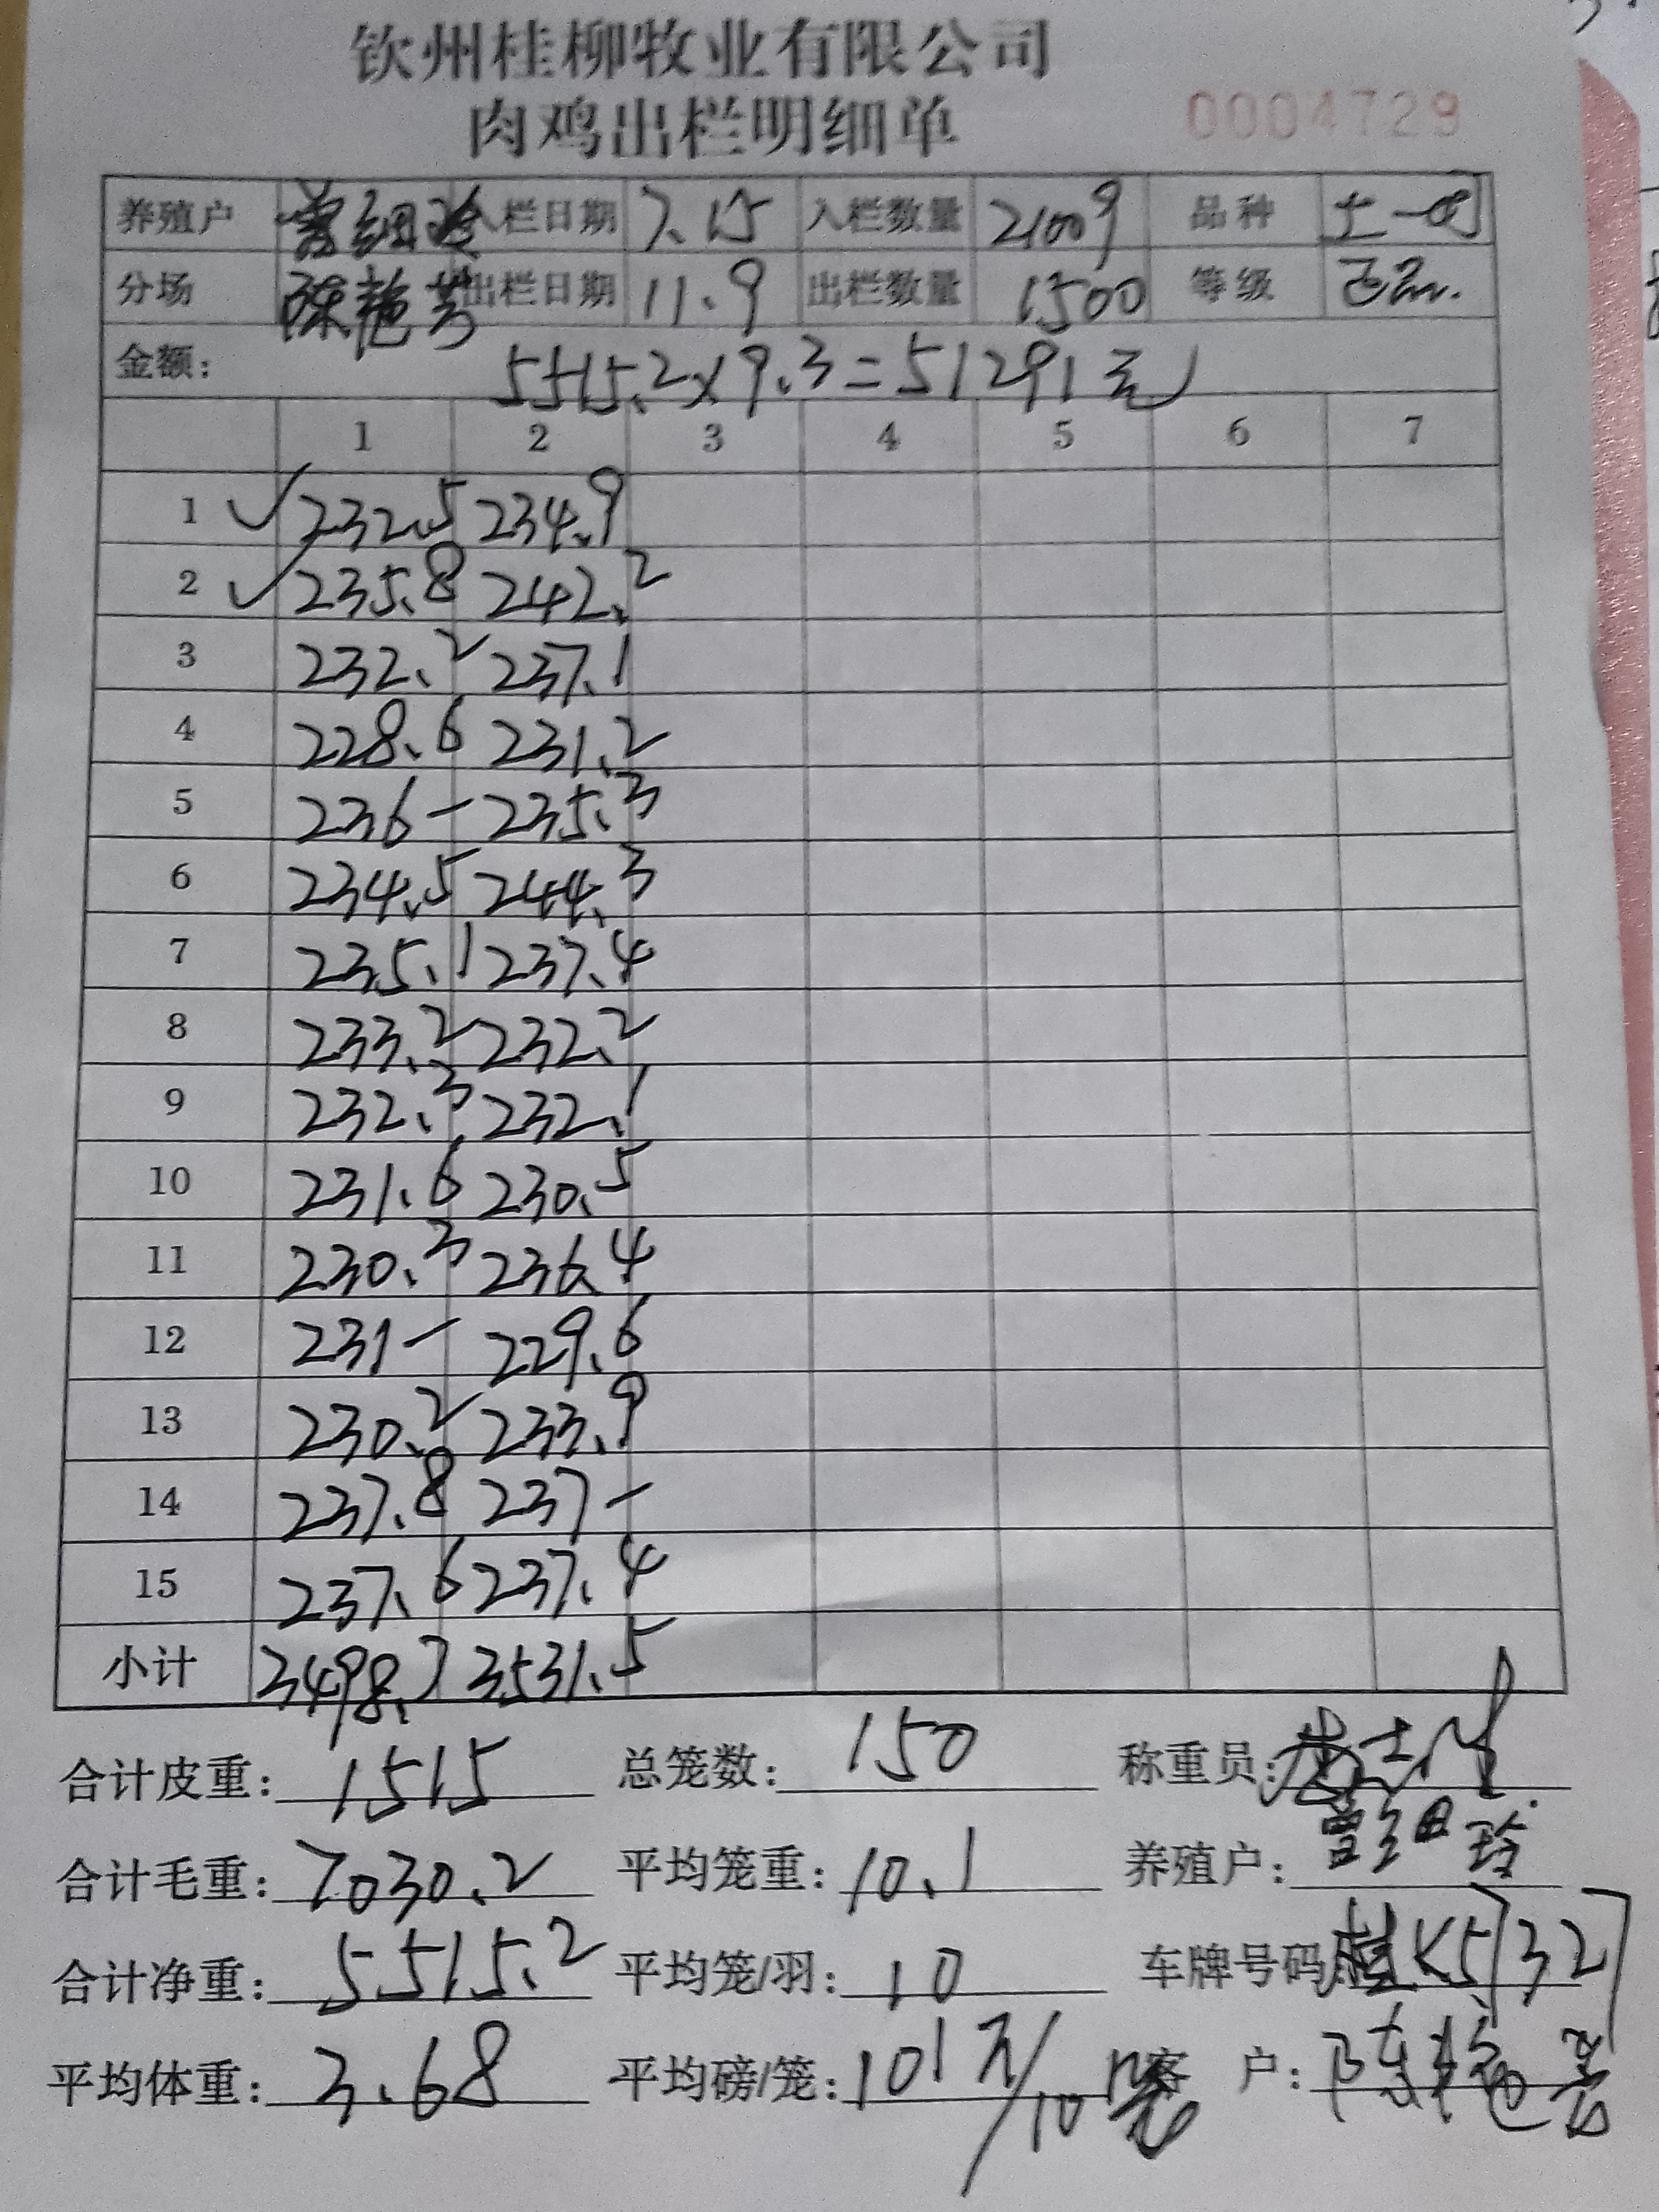 钦州桂柳牧业有限公司
肉鸡出栏明细单 0004729
养殖户 曾细玲 入栏日期 7.15 入栏数量 2100 品种 土一
分场 陈艳芳 出栏日期 11.9 出栏数量 1500 等级 正品
金额: 5515.2×9.3=51291元
1 2 3 4 5 6 7
1 232.5 234.9
2 235.8 242.2
3 232.2 237.1
4 228.6 231.2
5 236- 235.3
6 234.5 244.3
7 235.1 237.4
8 233.2 232.2
9 232.3 232.1
10 231.6 230.5
11 230.3 236.4
12 231- 229.6
13 230.2 233.9
14 237.8 237-
15 237.6 237.4
小计 3498.7 3531.5
合计皮重: 1515 总笼数: 150 称重员:
合计毛重: 7030.2 平均笼重: 10.1 养殖户: 曾细玲
合计净重: 5515.2 平均笼/羽: 10 车牌号码 桂K57327
平均体重: 3.68 平均磅/笼: 101斤/10笼 客 户: 陈艳芳